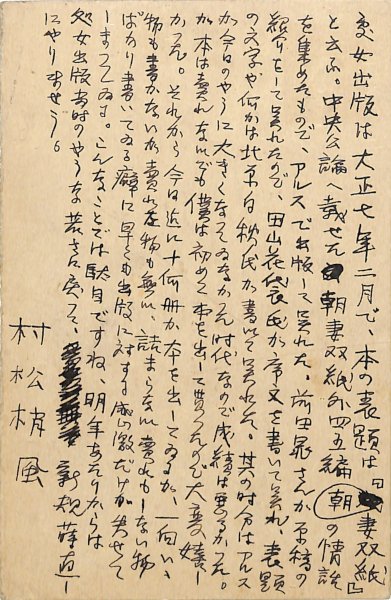 處女出版は大正七年二月で、本の表題は『朝妻双紙』
と云ふ。中央公論へ載せた朝妻双紙外四五編の情話
を集めたもので、アルスで出版して呉れた。前田晁さんが原稿の
紹介をして呉れたので、田山花袋氏が序文を書いて呉れ、表題
の文字や何かは北原白秋氏が書いて呉れた。其の時分はアルス
が今日のやうに大きくなつてゐなかつた時代なので成績は悪るかつた。
が本は賣れないでも僕は初めて本を出して貰つたので大変嬉し
かつた。それから今日迄に十何册か本を出してゐるが、一向いゝ
物も書かないが賣れる物も無い。詰まらない賣れもしない物
ばかり書いてゐる癖に早くも出版に対する感激だけが失せて
しまつてゐる。こんなことでは駄目ですね、明年あたりからは
処女出版当時のやうな若さに戻つて、新規蒔直し
にやりませう。
村松梢風